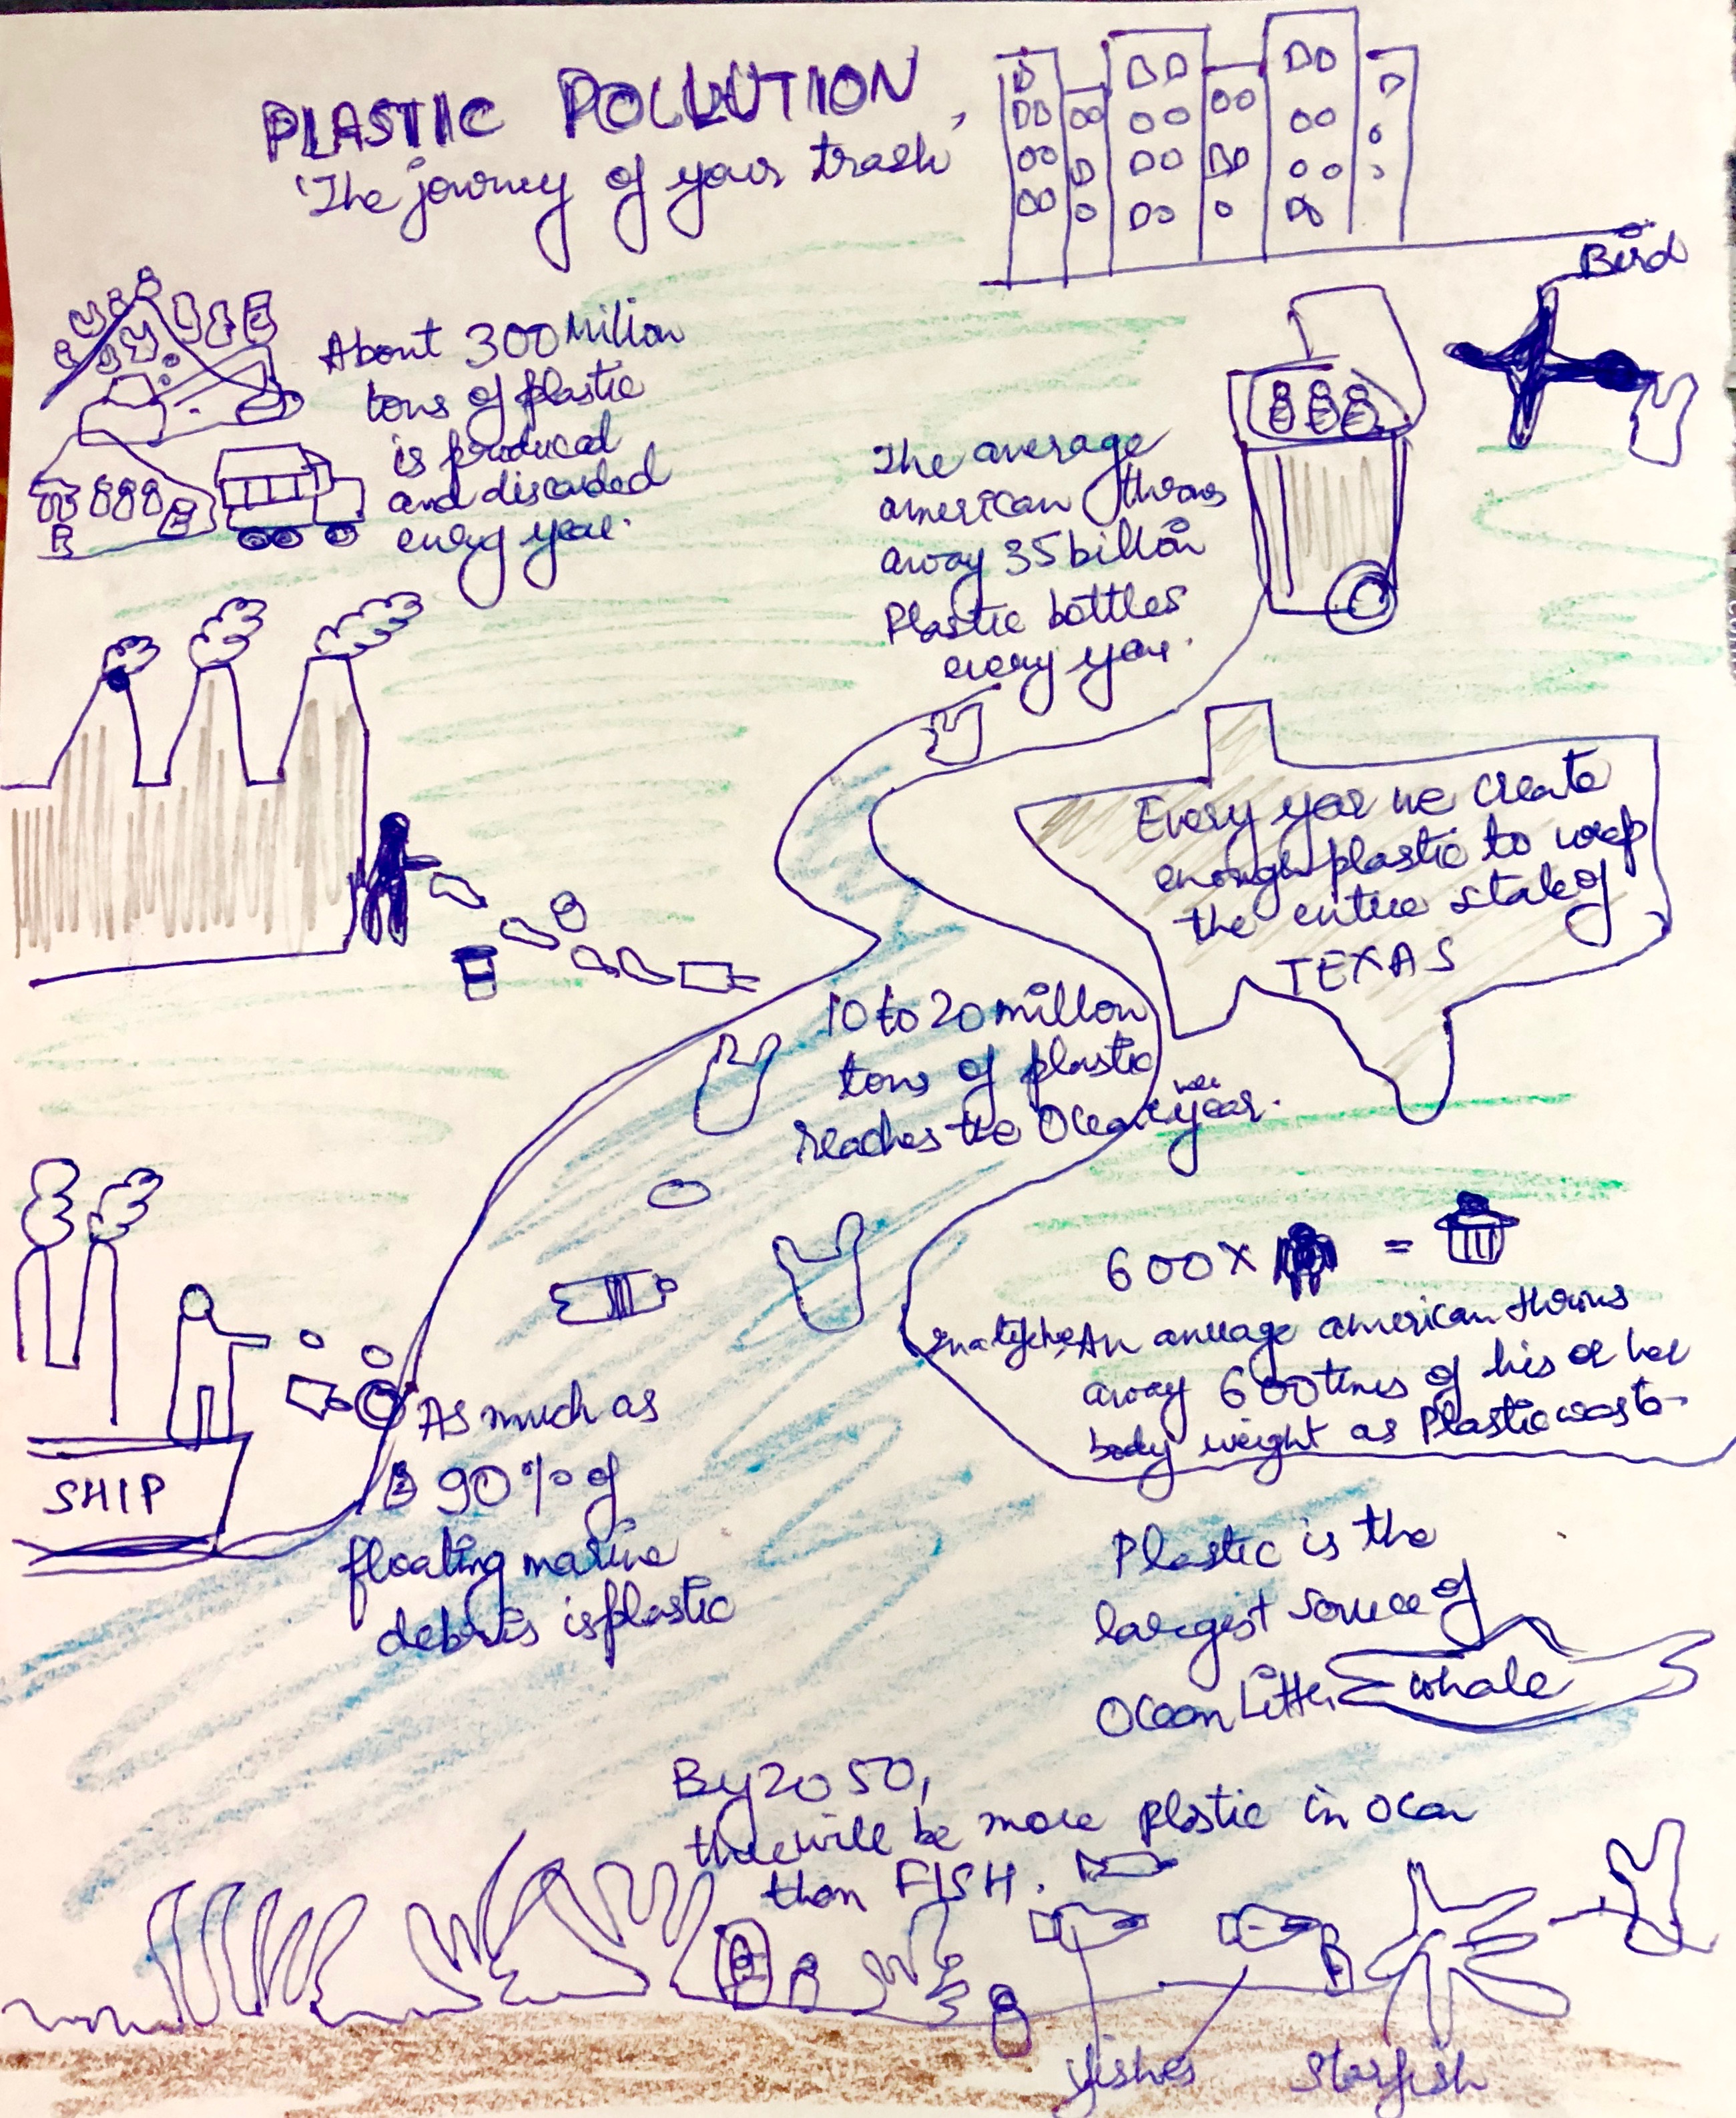 PLASTIC POLLUTION
'The journey of your trash'
Bird
About 300 Million
tons of plastic
is produced
and discarded
every year.
The average
american throws
away 35 billion
Plastic bottles
every year.
Every year we create
enough plastic to wrap
the entire state of
TEXAS
10 to 20 million
tons of plastic
reaches the Ocean year.
600 X =
An average american throws
away 600 times of his or her
body weight as Plastic waste
SHIP
As much as
90% of
floating marine
debris is plastic
Plastic is the
largest source of
Ocean Litter
whale
By 2050,
there will be more plastic in Ocean
than FISH.
fishes
Starfish